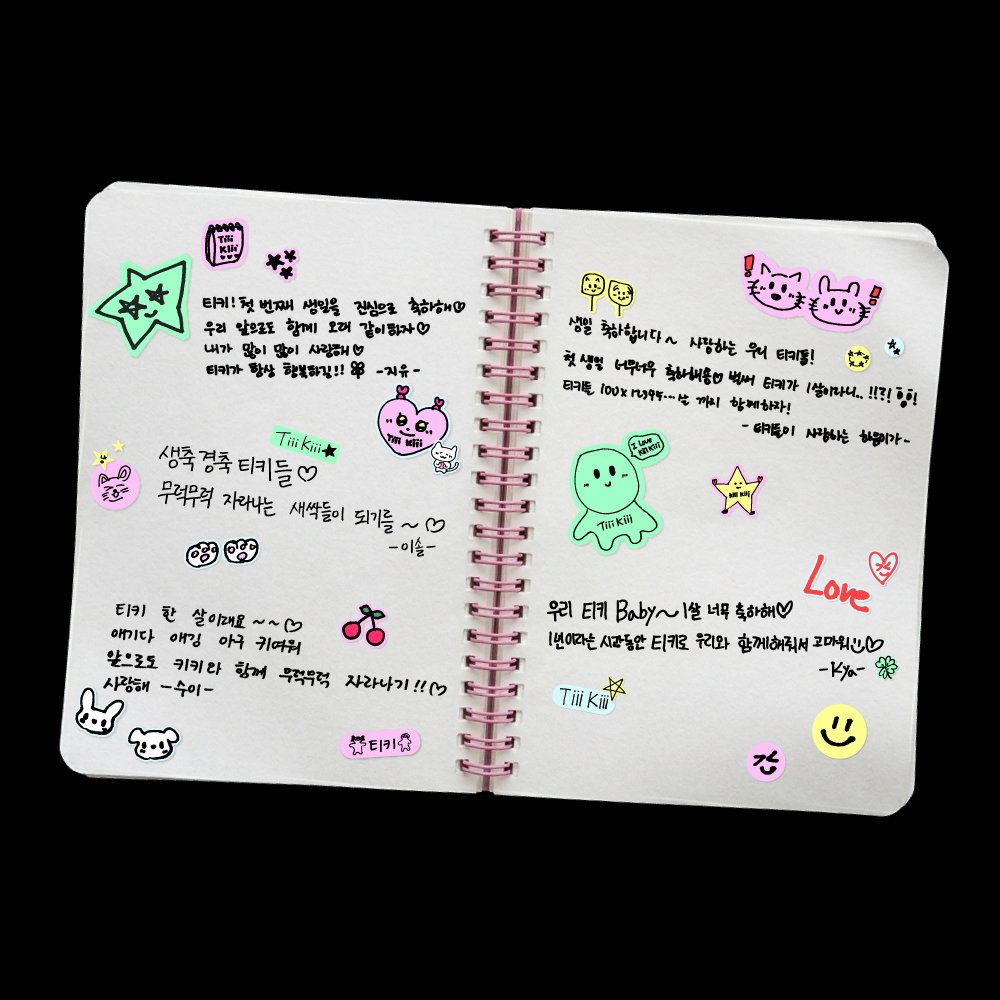 Tiii
Kiii
티키! 첫 번째 생일을 진심으로 축하해♡
우리 앞으로도 함께 오래 같이하자♡
내가 많이 많이 사랑해♡
티키가 항상 행복하길!! -지유-
Tiii Kiii
Tiii Kiii★
생축경축 티키들♡
무럭무럭 자라나는 새싹들이 되기를~♡
-이솔-
티키 한 살이래요~~♡
애기다 애깅 아구 키여워
앞으로도 키키랑 함께 무럭무럭 자라나기!!♡
사랑해 -수이-
티키
생일 축하합니다~ 사랑하는 우리 티키들!
첫 생일 너무너무 축하해용♡ 벌써 티키가 1살이라니..!!?!
티키들 100x12345...살 까지 함께하자!
-티키들이 사랑하는 하음이가-
I Love
KiiiKiii
Tiii Kiii
Kiii Kiii
Love
우리 티키 Baby~ 1살 너무 축하해♡
1년이라는 시간동안 티키로 우리와 함께해줘서 고마워♡
-Kya-
Tiii Kiii